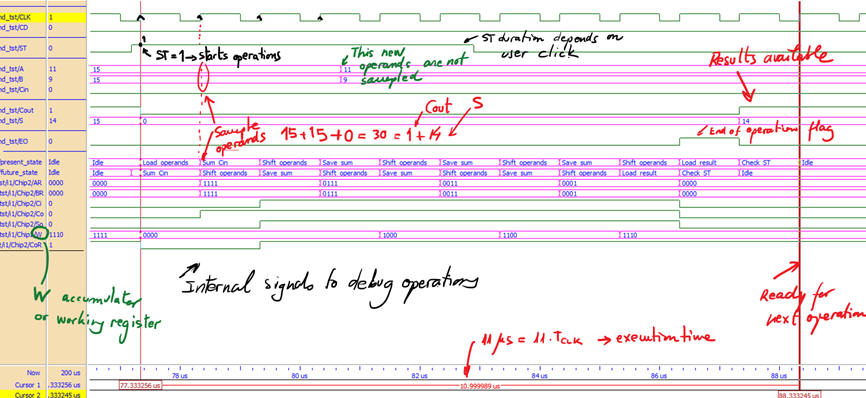 nd_tst/CLK 1
nd_tst/CD 0
nd_tst/ST 0
ST=1→starts operations
ST duration depends on
user click
nd_tst/A 11 15 11
nd_tst/B 9 15 9
nd_tst/Cin 0
This new
operands are not
sampled
Results available
nd_tst/Cout 1
nd_tst/S 14 15 0 14
Cout
S
Sample
operands
15+15+0=30=1+14
nd_tst/EO 0
End of operation flag
/present_state Idle Idle Load operands Sum Cin Shift operands Save sum Shift operands Save sum Shift operands Save sum Shift operands Load result Check ST Idle
/future_state Idle Idle Sum Cin Shift operands Save sum Shift operands Save sum Shift operands Save sum Shift operands Load result Check ST Idle
tst/i1/Chip2/AR 0000 0000 1111 0111 0011 0001 0000
tst/i1/Chip2/BR 0000 0000 1111 0111 0011 0001 0000
st/i1/Chip2/Ci 0
st/i1/Chip2/Co 0
st/i1/Chip2/So 0
tst/i1/Chip2/W 1110 1111 0000 1000 1100 1110
/i1/Chip2/CoR 1
Internal signals to debug operations
W accumulator
or working register
Ready for
next operation
11 µs = 11·TCLK → execution time
Now 200 us
78 us 80 us 82 us 84 us 86 us 88 us
Cursor 1 .333256 us 77.333256 us 10.999989 us
Cursor 2 .333245 us 88.333245 us